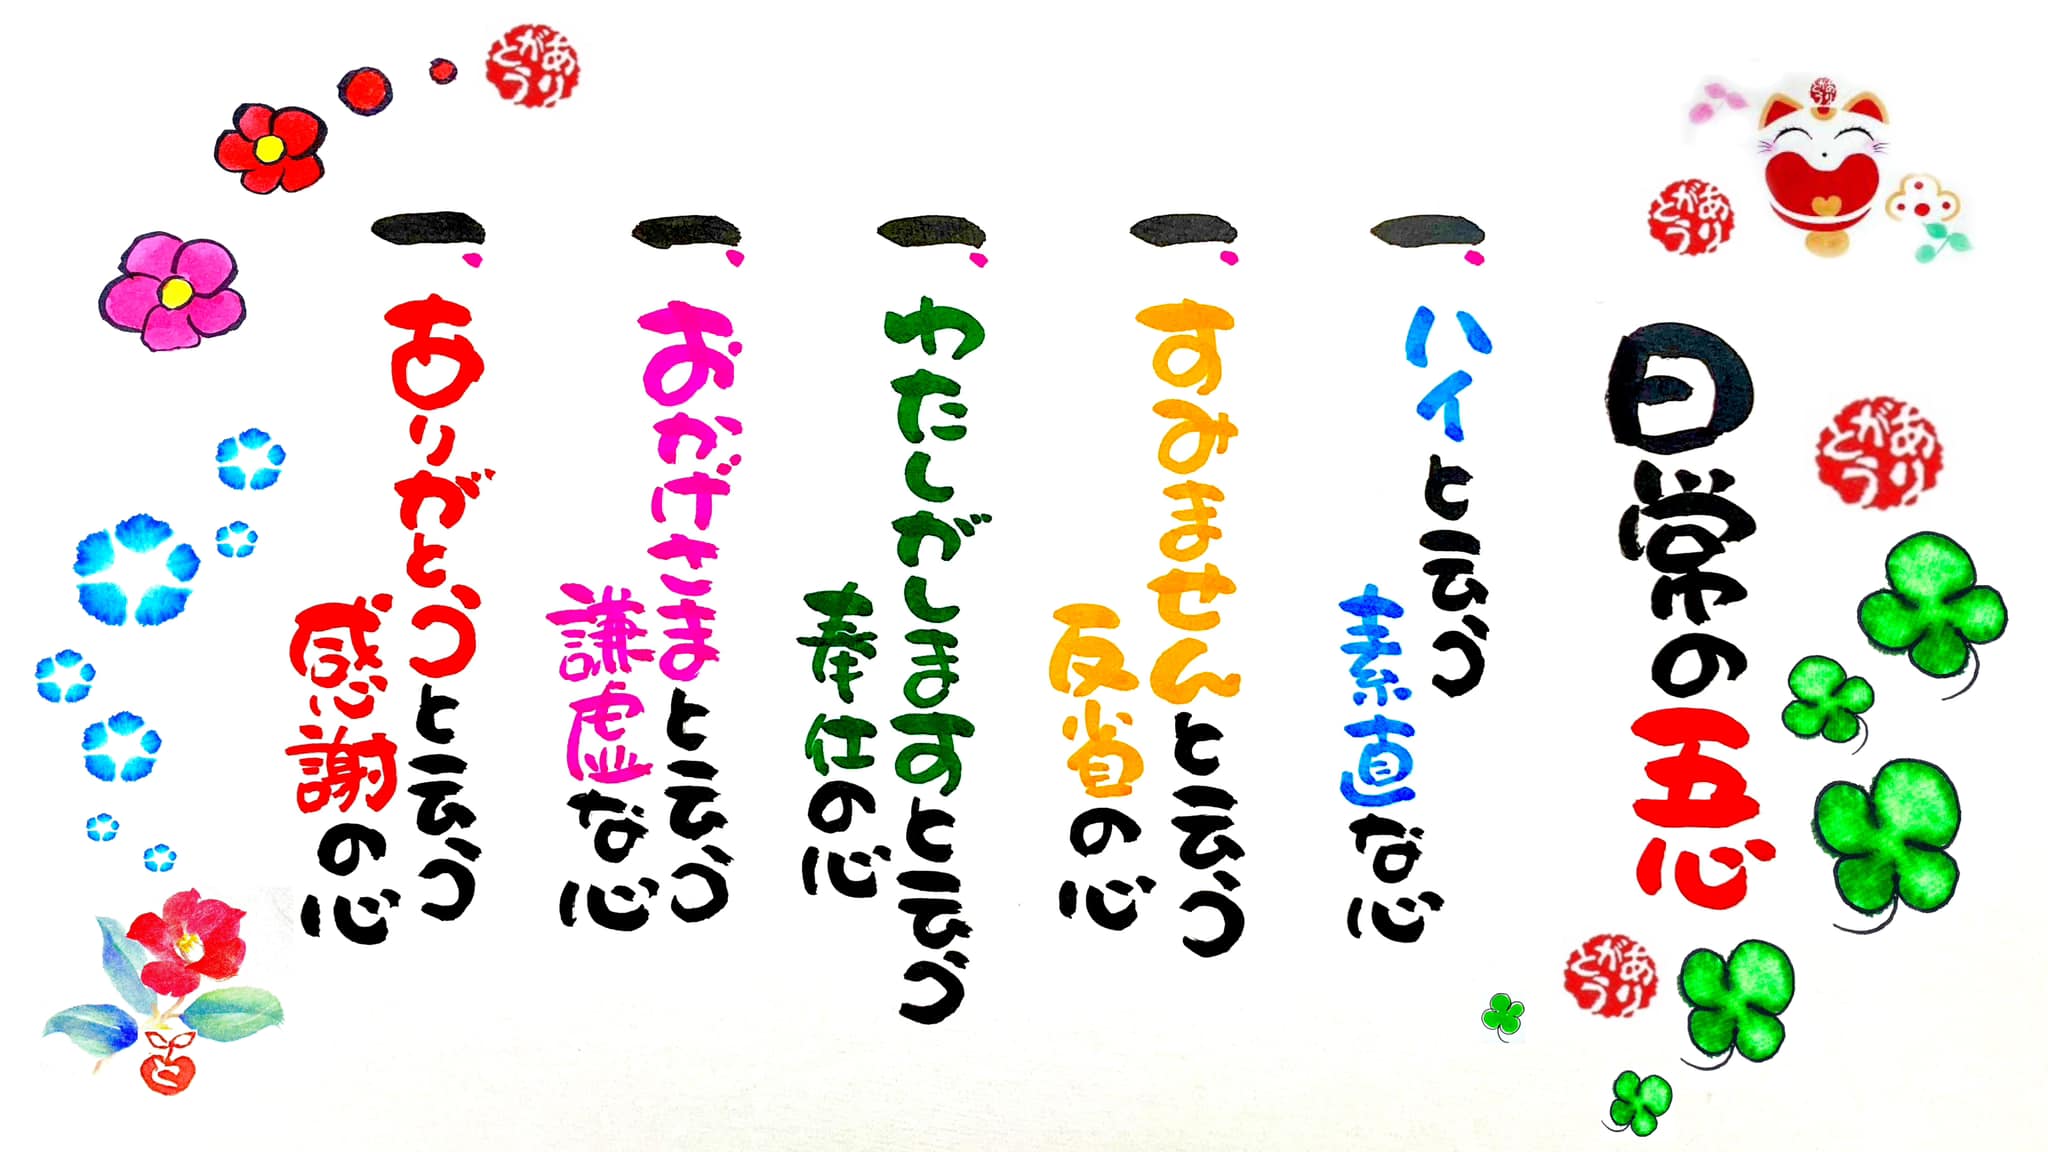 日常の五心
一、ハイと云う
素直な心
一、すみませんと云う
反省の心
一、わたしがしますと云う
奉仕の心
一、おかげさまと云う
謙虚な心
一、ありがとうと云う
感謝の心
ありがとう
ありがとう
ありがとう
ありがとう
ありがとう